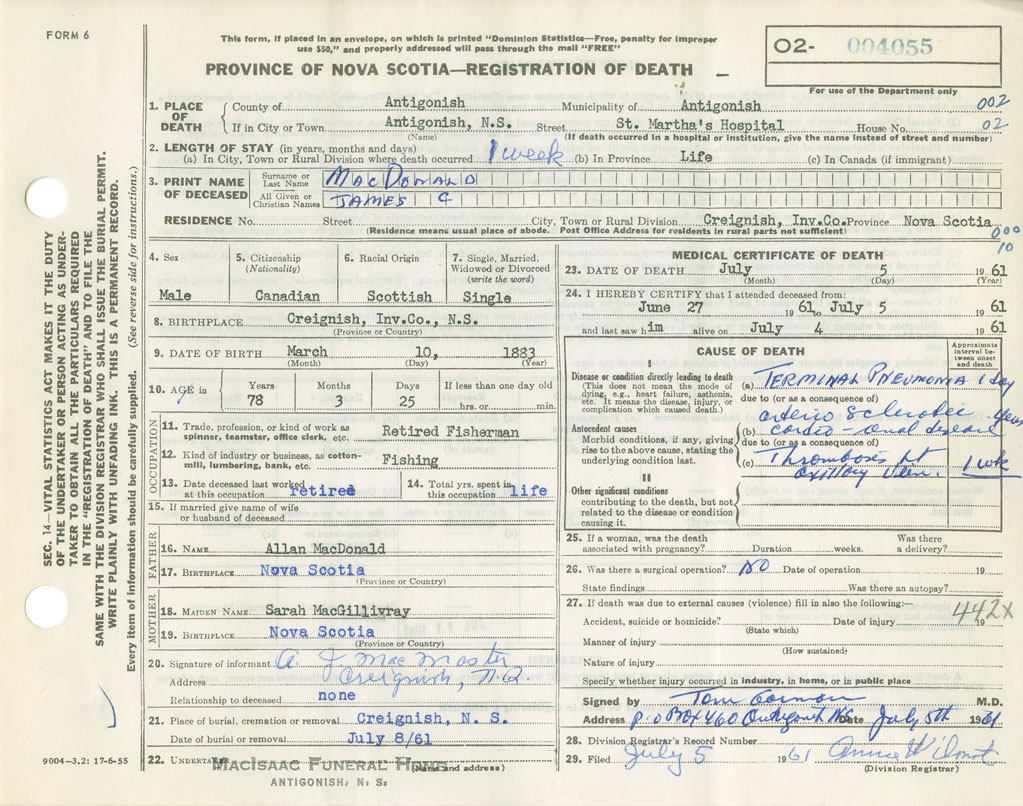 FORM 6
This form, if placed in an envelope, on which is printed "Dominion Statistics—Free, penalty for improper
use $50," and properly addressed will pass through the mail "FREE"
PROVINCE OF NOVA SCOTIA—REGISTRATION OF DEATH
02- 004055
For use of the Department only
002
02
SEC. 14—VITAL STATISTICS ACT MAKES IT THE DUTY
OF THE UNDERTAKER OR PERSON ACTING AS UNDER-
TAKER TO OBTAIN ALL THE PARTICULARS REQUIRED
IN THE "REGISTRATION OF DEATH" AND TO FILE THE
SAME WITH THE DIVISION REGISTRAR WHO SHALL ISSUE THE BURIAL PERMIT.
WRITE PLAINLY WITH UNFADING INK. THIS IS A PERMANENT RECORD.
Every item of information should be carefully supplied. (See reverse side for instructions.)
1. PLACE OF DEATH County of Antigonish Municipality of Antigonish
If in City or Town Antigonish, N.S. Street St. Martha's Hospital House No.
(Name) (If death occurred in a hospital or institution, give the name instead of street and number)
2. LENGTH OF STAY (in years, months and days)
(a) In City, Town or Rural Division where death occurred 1 week (b) In Province Life (c) In Canada (if immigrant)
3. PRINT NAME OF DECEASED Surname or Last Name MacDonald
All Given or Christian Names JAMES C
RESIDENCE No. Street City, Town or Rural Division Creignish, Inv.Co. Province Nova Scotia
(Residence means usual place of abode. Post Office Address for residents in rural parts not sufficient)
000
10
4. Sex Male
5. Citizenship (Nationality) Canadian
6. Racial Origin Scottish
7. Single, Married, Widowed or Divorced (write the word) Single
8. BIRTHPLACE Creignish, Inv.Co., N.S.
(Province or Country)
9. DATE OF BIRTH March 10, 1883
(Month) (Day) (Year)
10. AGE in Years 78 Months 3 Days 25 If less than one day old hrs. or min.
OCCUPATION
11. Trade, profession, or kind of work as spinner, teamster, office clerk, etc. Retired Fisherman
12. Kind of industry or business, as cotton-mill, lumbering, bank, etc. Fishing
13. Date deceased last worked at this occupation retired
14. Total yrs. spent in this occupation life
15. If married give name of wife or husband of deceased
FATHER
16. NAME Allan MacDonald
17. BIRTHPLACE Nova Scotia
(Province or Country)
MOTHER
18. MAIDEN NAME Sarah MacGillivray
19. BIRTHPLACE Nova Scotia
(Province or Country)
20. Signature of informant A J MacMaster
Address Creignish, N.S.
Relationship to deceased none
21. Place of burial, cremation or removal Creignish, N. S.
Date of burial or removal July 8/61
22. UNDERTAKER MACISAAC FUNERAL HOME
(Name and address)
ANTIGONISH, N. S.
9004—3.2: 17-6-55
MEDICAL CERTIFICATE OF DEATH
23. DATE OF DEATH July 5 1961
(Month) (Day) (Year)
24. I HEREBY CERTIFY that I attended deceased from:
June 27 1961 to July 5 1961
and last saw him alive on July 4 1961
CAUSE OF DEATH
Approximate interval between onset and death
I
Disease or condition directly leading to death
(This does not mean the mode of dying, e.g., heart failure, asthenia, etc. It means the disease, injury, or complication which caused death.)
(a) TERMINAL PNEUMONIA 1 day
due to (or as a consequence of)
Antecedent causes
Morbid conditions, if any, giving rise to the above cause, stating the underlying condition last.
(b) arterio sclerotic cardio-renal disease years
due to (or as a consequence of)
(c) Thrombosis Lt axillary vein. 1 wk
II
Other significant conditions
contributing to the death, but not related to the disease or condition causing it.
25. If a woman, was the death associated with pregnancy? Duration weeks. Was there a delivery?
26. Was there a surgical operation? NO Date of operation 19
State findings Was there an autopsy?
27. If death was due to external causes (violence) fill in also the following:—
442X
Accident, suicide or homicide? Date of injury 19
(State which)
Manner of injury
(How sustained)
Nature of injury
Specify whether injury occurred in industry, in home, or in public place
Signed by Tom Gorman M.D.
Address P.O Box 460 Antigonish NS Date July 5th 1961
28. Division Registrar's Record Number
29. Filed July 5 1961 Anna Wilmot
(Division Registrar)